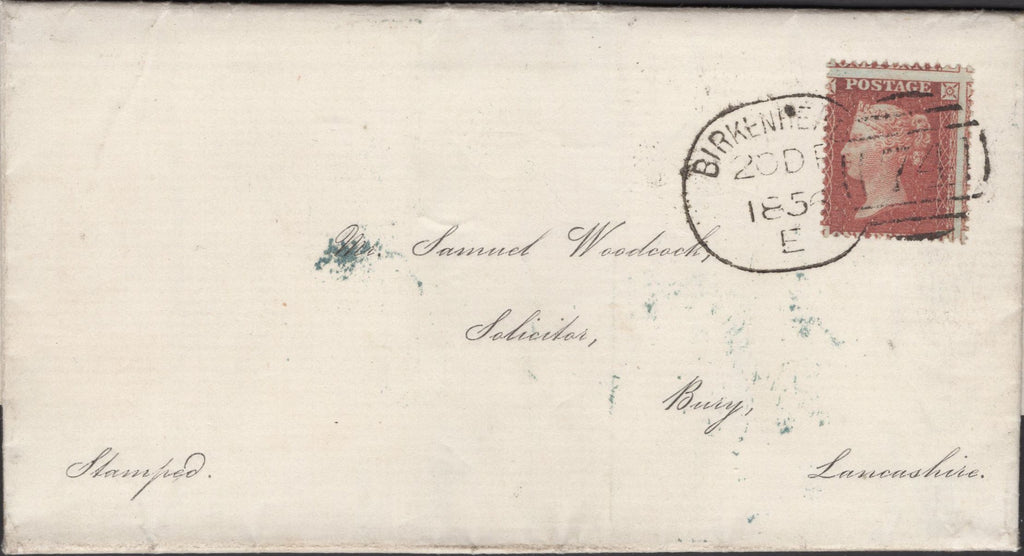 POSTAGE
BIRKENHEA
20 DE
1856
E
74
Mr. Samuel Woodcock,
Solicitor,
Bury,
Stamped.
Lancashire.